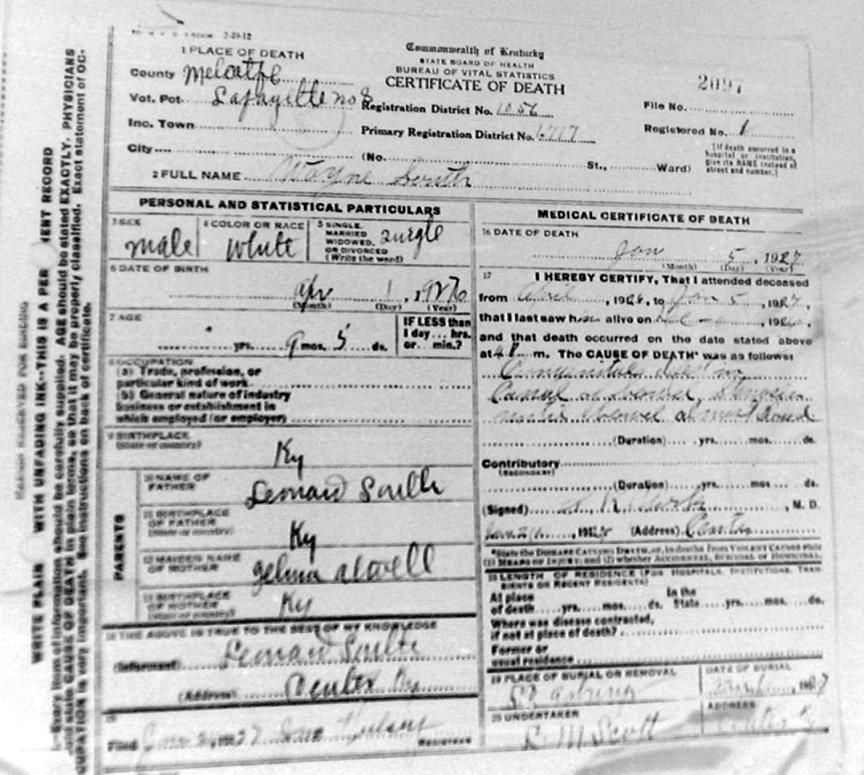 2-20-12
1 PLACE OF DEATH
County Metcalfe
Vot. Pct. Lafayette no 8
Inc. Town
City
(No. St., Ward)
Commonwealth of Kentucky
STATE BOARD OF HEALTH
BUREAU OF VITAL STATISTICS
CERTIFICATE OF DEATH
Registration District No. 1056
Primary Registration District No. 6717
2097
File No.
Registered No. 1
[If death occurred in a
hospital or institution,
give its NAME instead of
street and number.]
2 FULL NAME Wayne South
PERSONAL AND STATISTICAL PARTICULARS
3 SEX
male
4 COLOR OR RACE
White
5 SINGLE,
MARRIED
WIDOWED,
OR DIVORCED
(Write the word)
Single
6 DATE OF BIRTH
Apr 1, 1926
(Month) (Day) (Year)
7 AGE
yrs. 9 mos. 5 ds.
IF LESS than
1 day... hrs.
or... min.?
8 OCCUPATION
(a) Trade, profession, or
particular kind of work
(b) General nature of industry
business or establishment in
which employed (or employer)
9 BIRTHPLACE
(State or country)
Ky
PARENTS
10 NAME OF
FATHER
Leonard South
11 BIRTHPLACE
OF FATHER
(State or country)
Ky
12 MAIDEN NAME
OF MOTHER
Zelma Atwell
13 BIRTHPLACE
OF MOTHER
(State or country)
Ky
14 THE ABOVE IS TRUE TO THE BEST OF MY KNOWLEDGE
(Informant) Leonard South
(Address) Center Ky
15
Filed
Registrar
MEDICAL CERTIFICATE OF DEATH
16 DATE OF DEATH
Jan 5, 1927
(Month) (Day) (Year)
17 I HEREBY CERTIFY, That I attended deceased
from April, 1926, to Jan 5, 1927,
that I last saw him alive on
and that death occurred on the date stated above
at m. The CAUSE OF DEATH* was as follows:
Canal or bowel
bowel almost closed
(Duration) yrs. mos. ds.
Contributory
(SECONDARY)
(Duration) yrs. mos. ds.
(Signed) M. D.
(Address) Center
*State the DISEASE CAUSING DEATH, or, in deaths from VIOLENT CAUSES state
(1) MEANS OF INJURY; and (2) whether ACCIDENTAL, SUICIDAL OR HOMICIDAL.
18 LENGTH OF RESIDENCE (FOR HOSPITALS, INSTITUTIONS, TRANSIENTS OR RECENT RESIDENTS)
At place
of death yrs. mos. ds.
In the
State yrs. mos. ds.
Where was disease contracted,
if not at place of death?
Former or
usual residence
19 PLACE OF BURIAL OR REMOVAL
DATE OF BURIAL
20 UNDERTAKER
L M Scott
ADDRESS
Center Ky
MARGIN RESERVED FOR BINDING
WRITE PLAIN WITH UNFADING INK--THIS IS A PER ENT RECORD
Every item of information should be carefully supplied. AGE should be stated EXACTLY. PHYSICIANS
state CAUSE OF DEATH in plain terms, so that it may be properly classified. Exact statement of OC-
CUPATION is very important. See instructions on back of certificate.